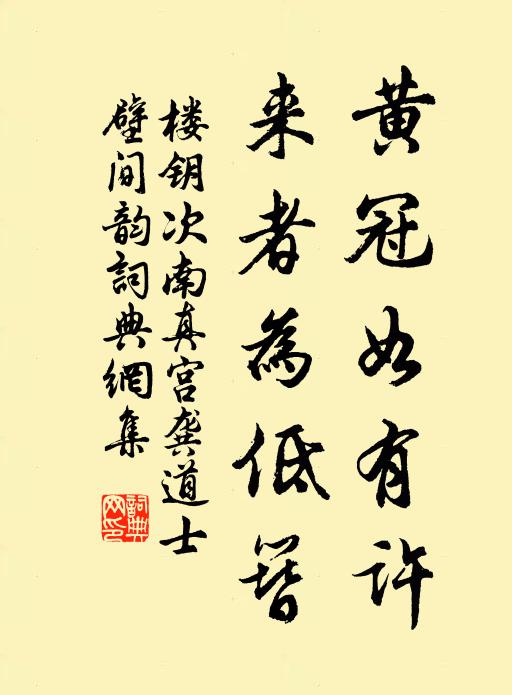 黄冠如有许
来者為低簪
楼钥次南真宫龚道士
壁间韵詞典網集
詞典
网印